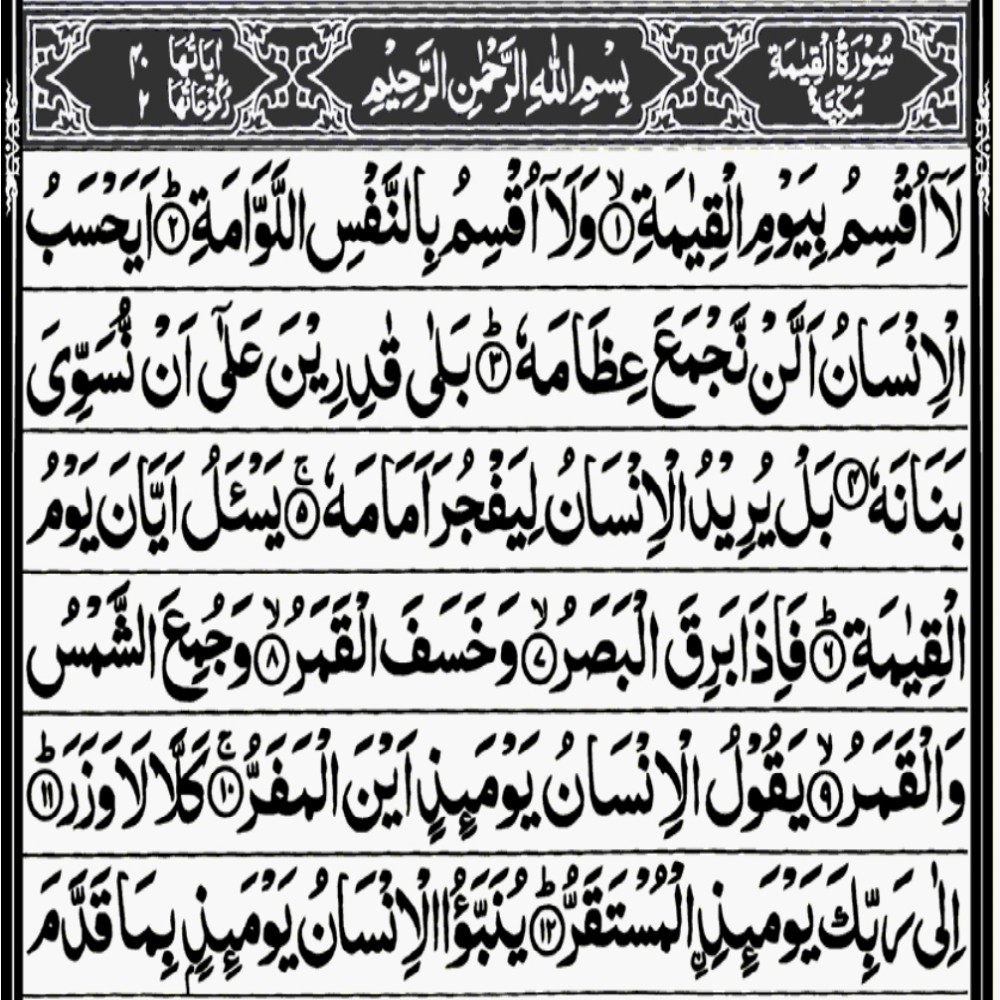 سُوْرَةُ الْقِيٰمَةِ مَكِّيَّةٌ
بِسْمِ اللهِ الرَّحْمٰنِ الرَّحِيْمِ
اٰيَاتُهَا ۴۰
رُكُوْعَاتُهَا ۲
لَاۤ اُقْسِمُ بِيَوْمِ الْقِيٰمَةِۙ ۱ وَلَاۤ اُقْسِمُ بِالنَّفْسِ اللَّوَّامَةِؕ ۲ اَيَحْسَبُ
الْاِنْسَانُ اَلَّنْ نَّجْمَعَ عِظَامَهٗؕ ۳ بَلٰى قٰدِرِيْنَ عَلٰۤى اَنْ نُّسَوِّىَ
بَنَانَهٗ ۴ بَلْ يُرِيْدُ الْاِنْسَانُ لِيَفْجُرَ اَمَامَهٗۚ ۵ يَسْـَٔلُ اَيَّانَ يَوْمُ
الْقِيٰمَةِؕ ۶ فَاِذَا بَرِقَ الْبَصَرُۙ ۷ وَخَسَفَ الْقَمَرُۙ ۸ وَجُمِعَ الشَّمْسُ
وَالْقَمَرُۙ ۹ يَقُوْلُ الْاِنْسَانُ يَوْمَىِٕذٍ اَيْنَ الْمَفَرُّۚ ۱۰ كَلَّا لَا وَزَرَؕ ۱۱
اِلٰى رَبِّكَ يَوْمَىِٕذِ ۨالْمُسْتَقَرُّؕ ۱۲ يُنَبَّؤُا الْاِنْسَانُ يَوْمَىِٕذٍۭ بِمَا قَدَّمَ